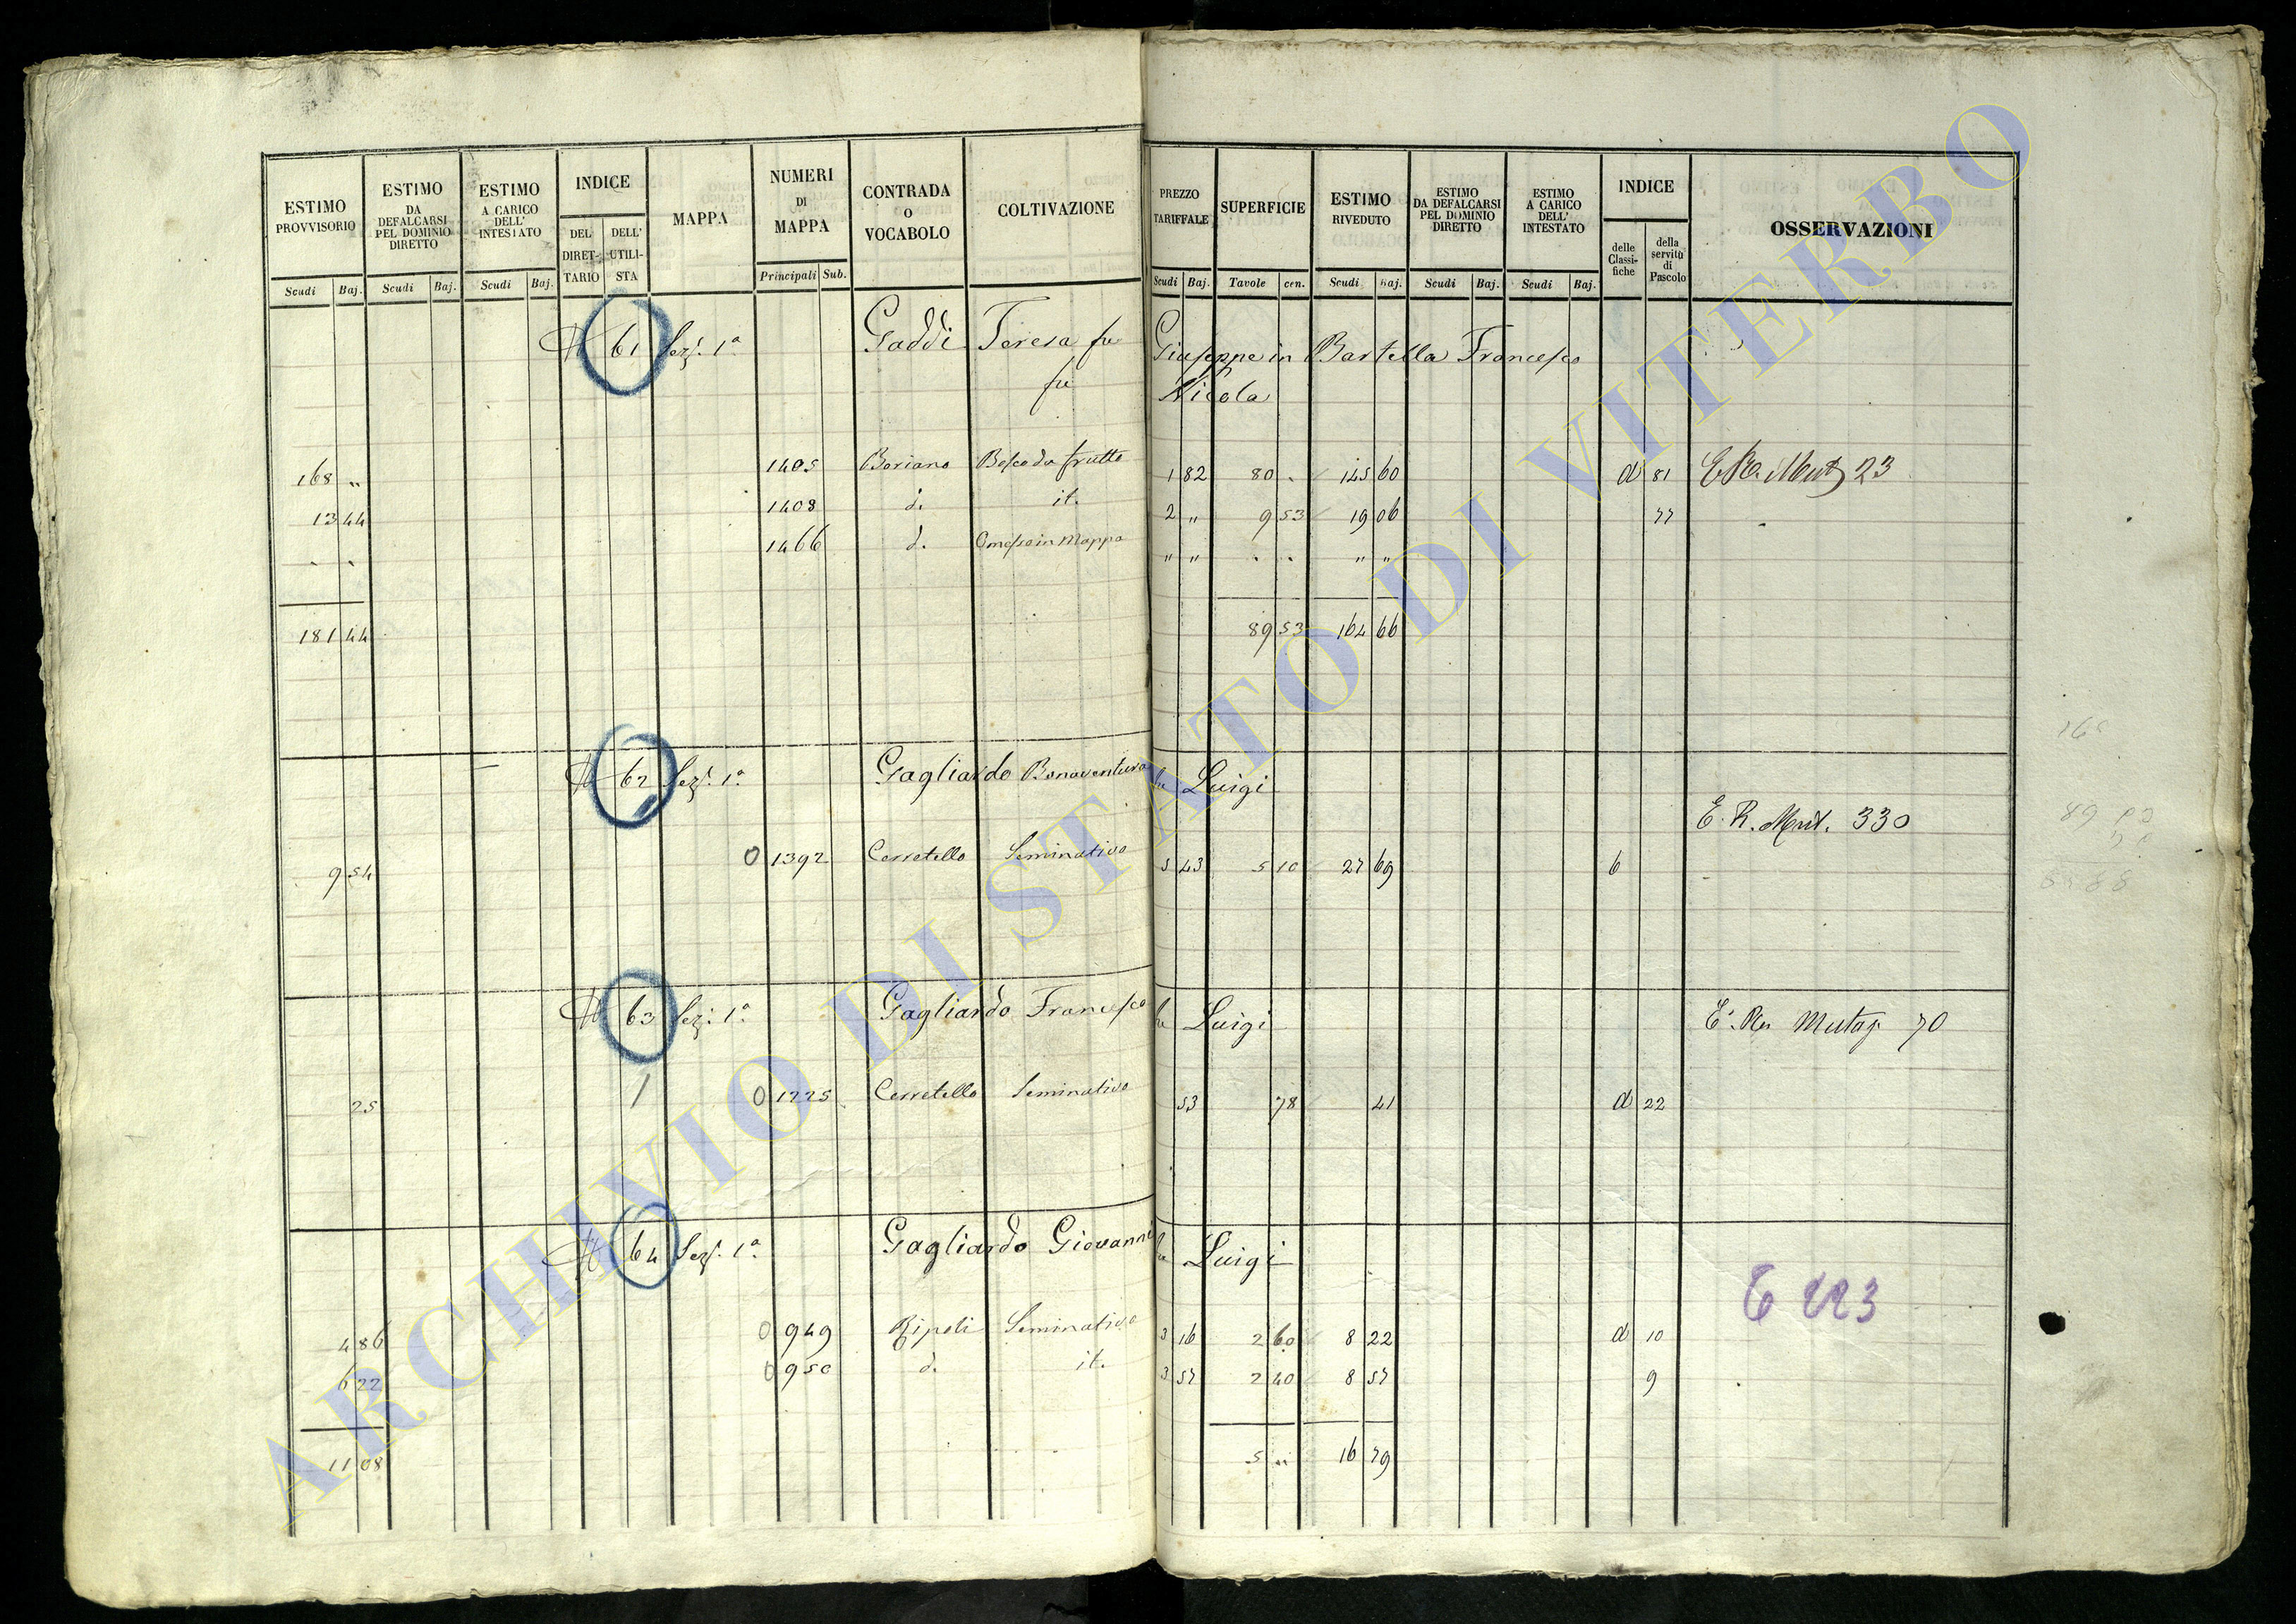 ESTIMO PROVVISORIO
ESTIMO DA DEFALCARSI PEL DOMINIO DIRETTO
ESTIMO A CARICO DELL' INTESTATO
INDICE
DEL DIRET-TARIO
DELL' UTILI-STA
MAPPA
NUMERI DI MAPPA
CONTRADA O VOCABOLO
COLTIVAZIONE
PREZZO TARIFFALE
SUPERFICIE
ESTIMO RIVEDUTO
ESTIMO DA DEFALCARSI PEL DOMINIO DIRETTO
ESTIMO A CARICO DELL' INTESTATO
INDICE
delle Classi-fiche
della servitù di Pascolo
OSSERVAZIONI
Scudi Baj. Scudi Baj. Scudi Baj. Principali Sub. Scudi Baj. Tavole cen. Scudi Baj. Scudi Baj. Scudi Baj.
61 Sez. 1a Gaddi Teresa fu Giuseppe in Bartella Francesco
fu Nicola
168 " 1405 Boriano Bosco da frutto 1 82 80 " 145 60 d 81 Mut 23
13 44 1408 d. it. 2 " 9 53 19 06 77
" " 1466 d. Omesso in Mappa " " " " " "
181 44 89 53 164 66
62 Sez. 1a Gagliardo Bonaventura fu Luigi
E. R. Mut. 330
9 54 0 1392 Cerretello Seminativo 5 43 5 10 27 69 6
63 Sez. 1a Gagliardo Francesco fu Luigi
70
25 0 1225 Cerretello Seminativo 53 78 41 d 22
64 Sez. 1a Gagliardo Giovanni fu Luigi
4 86 0 949 Ripoli Seminativo 3 16 2 60 8 22 d 10
6 22 0 950 d. it. 3 57 2 40 8 57 9
11 08 5 " 16 79
ARCHIVIO DI STATO DI VITERBO